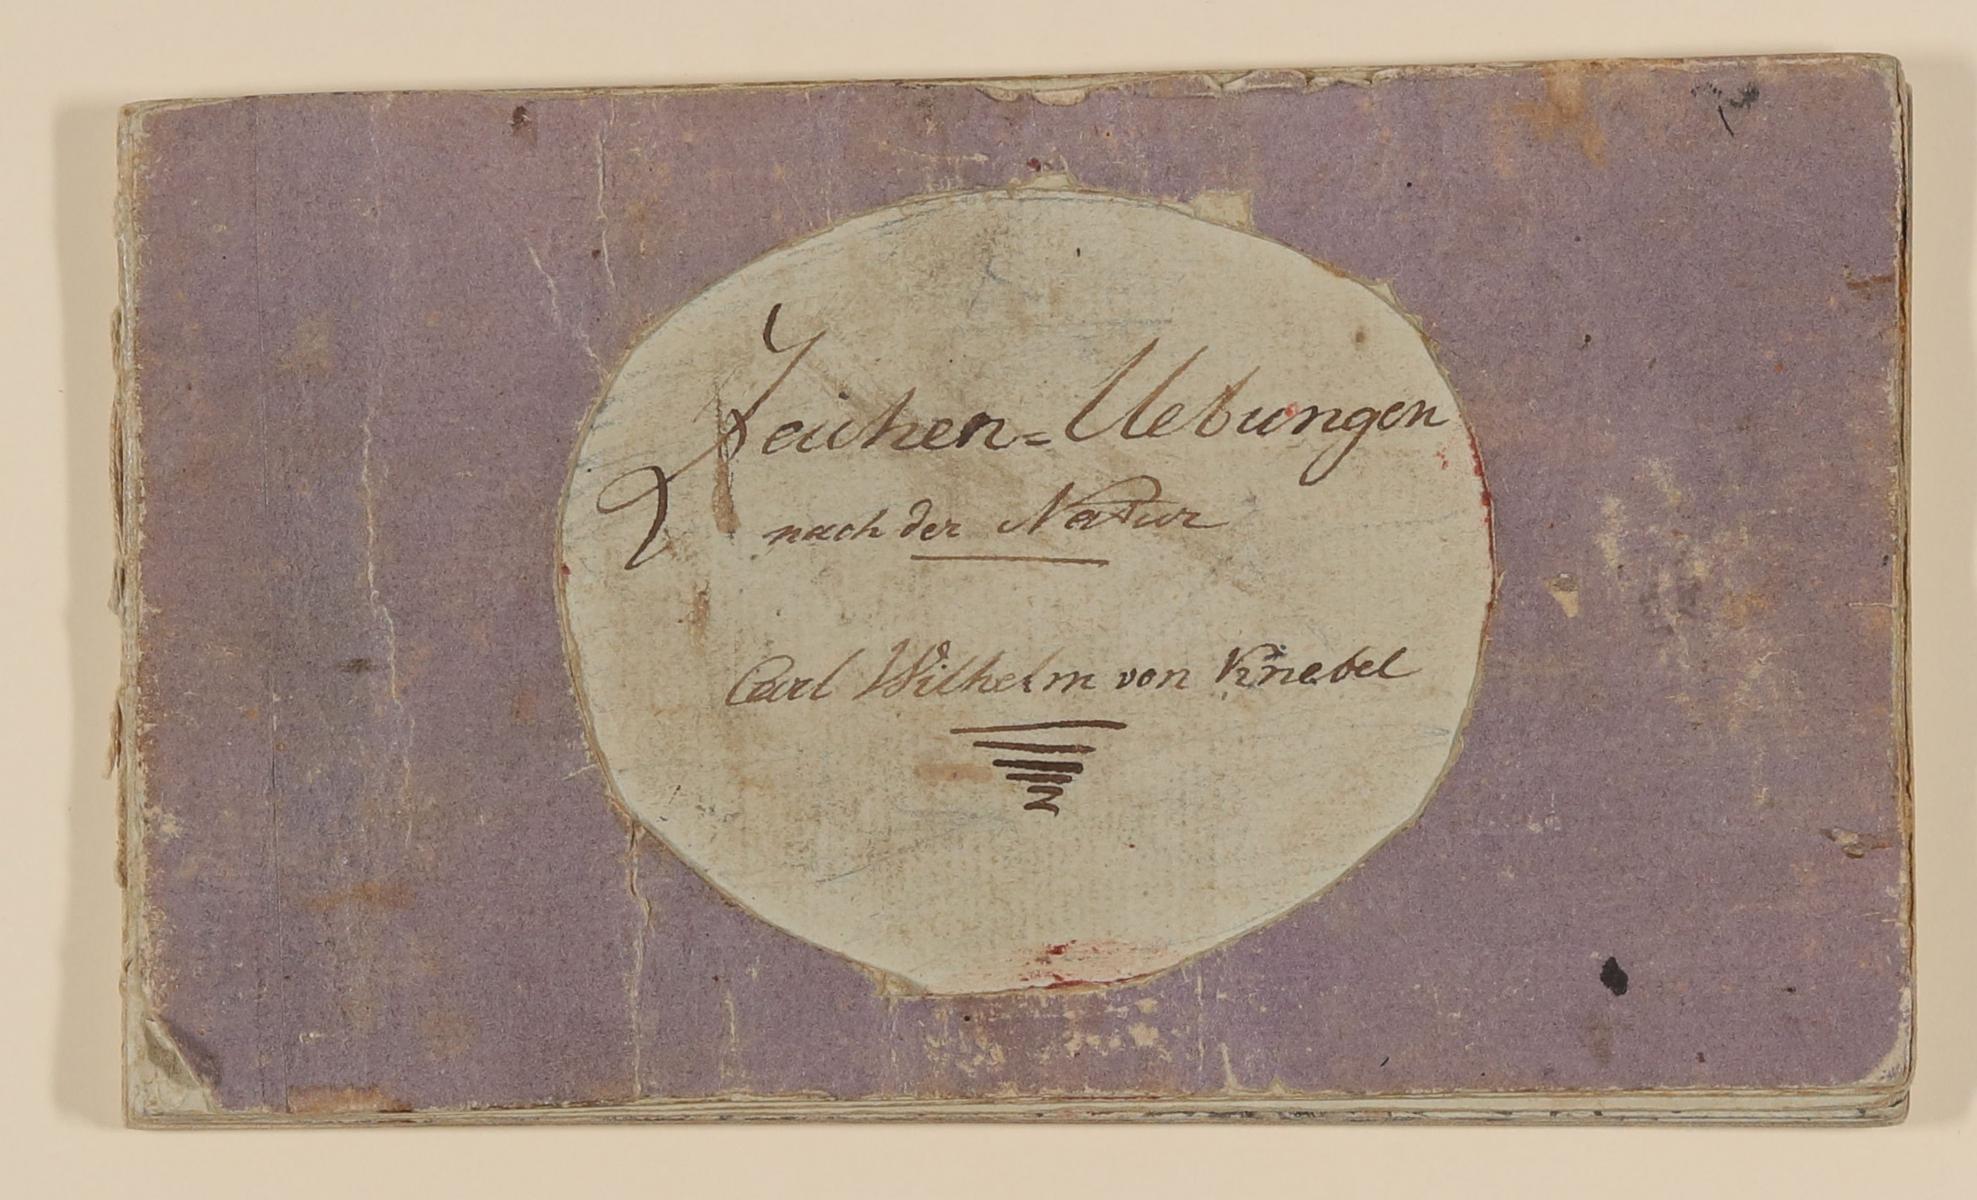 Zeichen=Uebungen
nach der Natur
Carl Wilhelm von Knebel